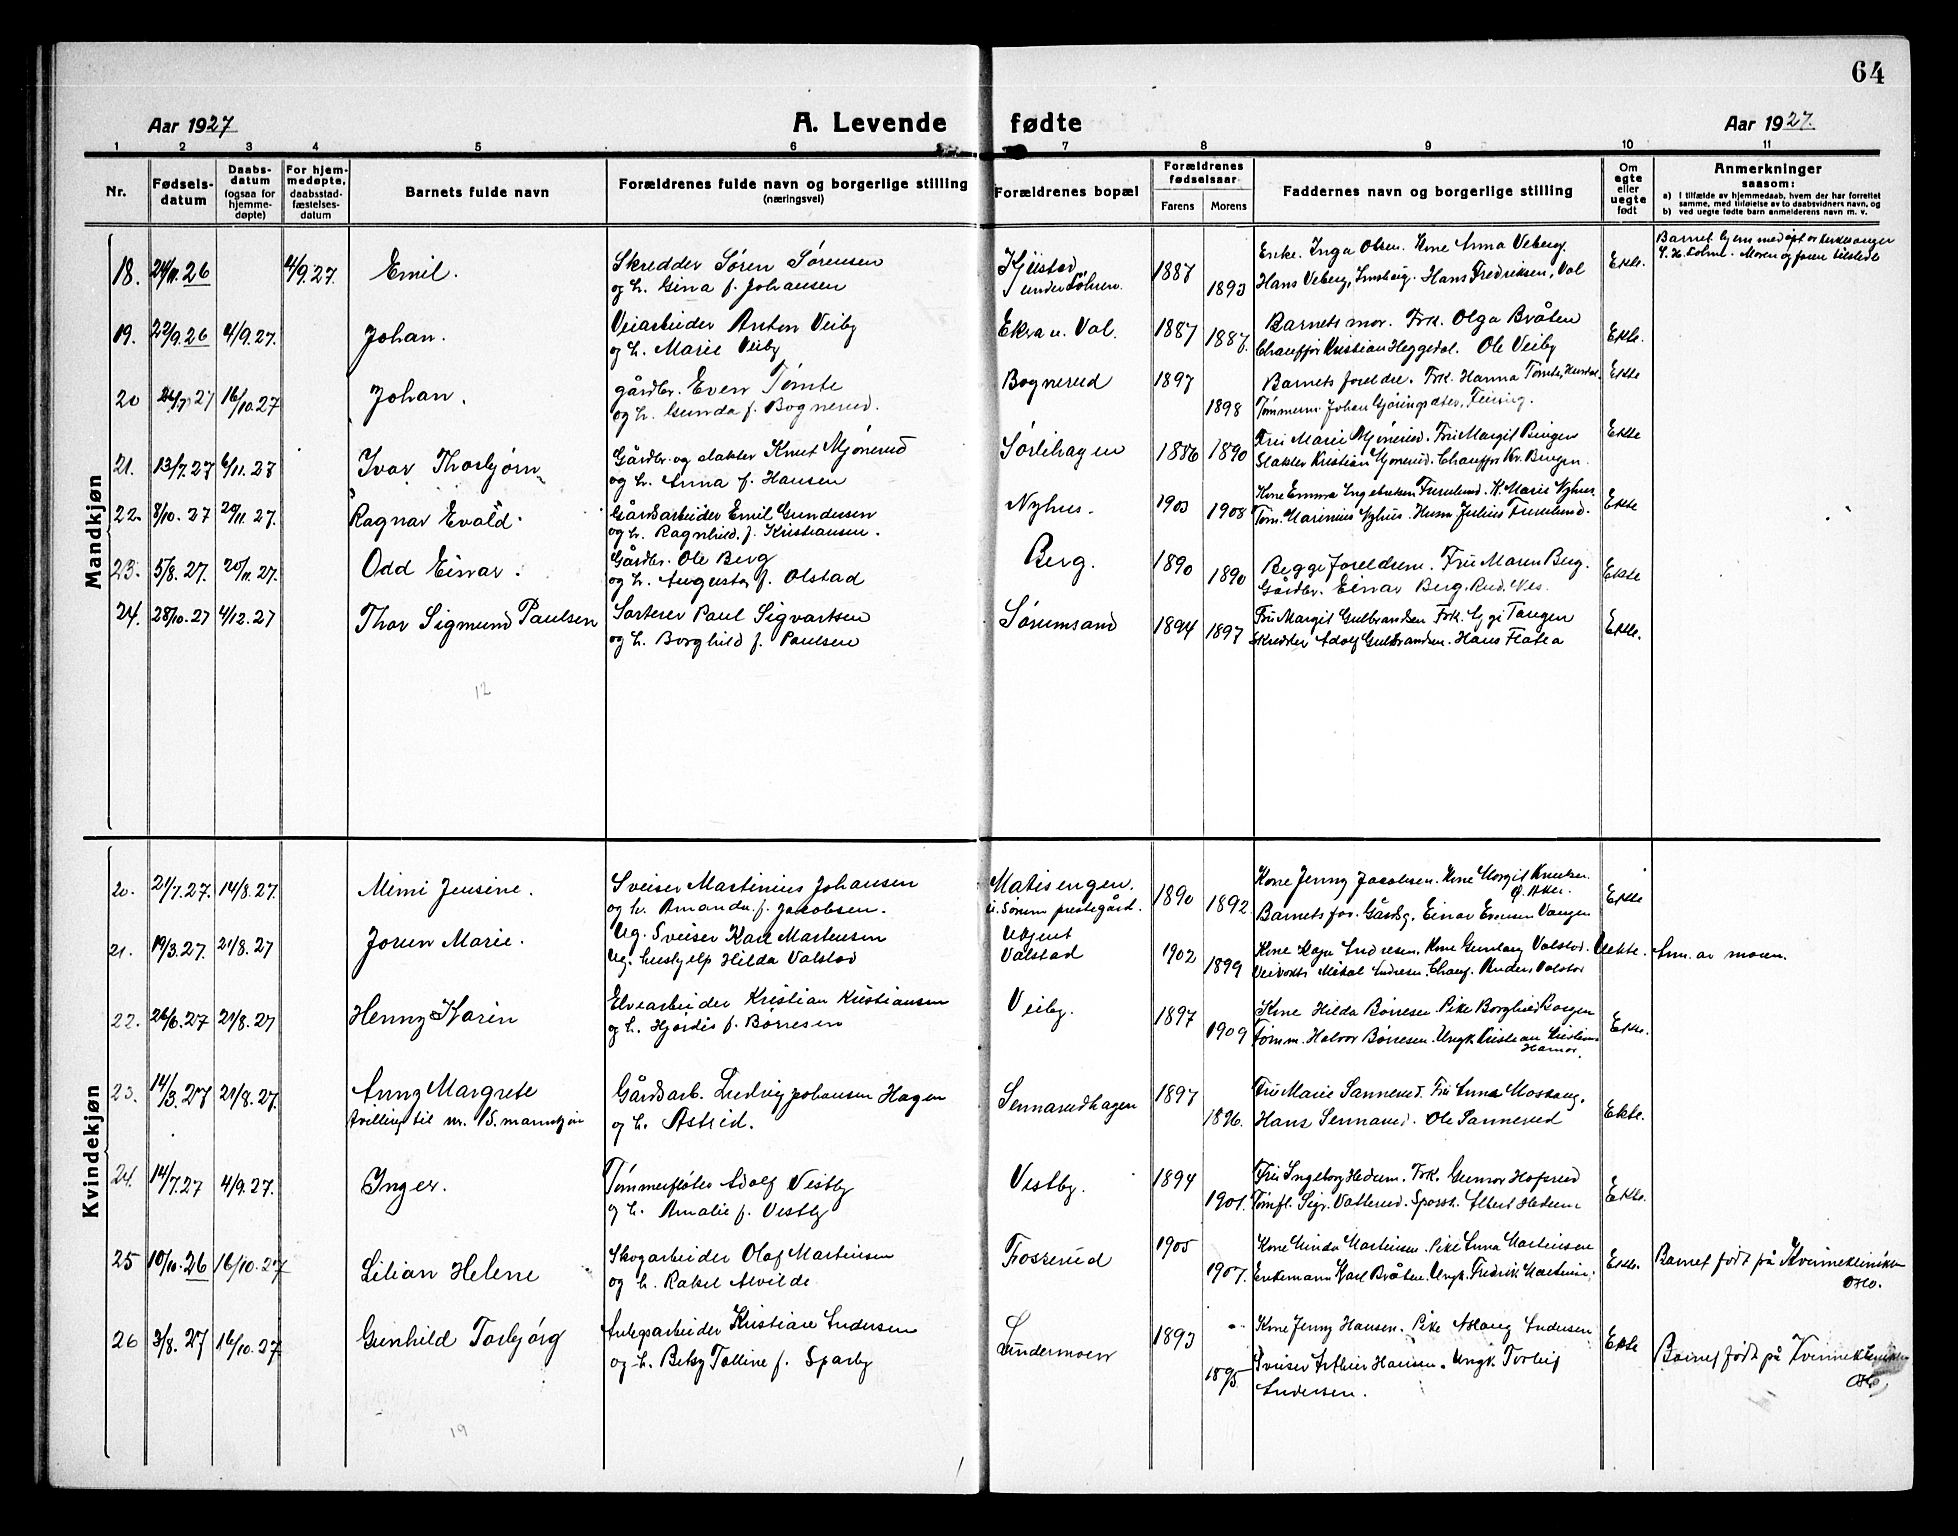 64
Aar 1927
A. Levende fødte
Aar 1927.
1 2 3 4 5 6 7 8 9 10 11
Nr.
Fødsels-
datum
Daabs-
datum
(ogsaa for
hjemme-
døpte)
For hjem-
medøpte,
daabsstad-
fæstelses-
datum
Barnets fulde navn
Forældrenes fulde navn og borgerlige stilling
(næringsvei)
Forældrenes bopæl
Forældrenes
fødselsaar
Farens Morens
Faddernes navn og borgerlige stilling
Om
egte
eller
uegte
født
Anmerkninger
saasom:
a) I tilfælde av hjemmedaab, hvem der har forrettet
samme, med tilføielse av to daabsvidners navn, og
b) ved uegte fødte barn anmelderens navn m. v.
Mandkjøn
18. 24/11.26 4/9.27. Emil. Skredder Søren Sørensen 1887 Enke. Inga Olsen. Kone Anna Veberg. Ekte. Barnet hjemmedøpt av kirkesanger
og h. Gina f. Johansen 1893 Hans Veberg, Hans Fredriksen, Val Moren og faren tilstede
19. 22/9.26 4/9.27. Johan. Veiarbeider Anton Veiby Ekra u. Val. 1887 1887. Barnets mor. Frk. Olga Bråten Ekte.
og h. Marie Veiby Chauffør Kristian Heggedal. Ole Veiby
20 26/7.27 16/10.27 Johan. gårdbr. Even Tømte Bognerud 1897 Barnets foreldre. Frk. Hanna Tømte, Ekte
og h. Gunda f. Bognerud. 1898 Tømmerm. Johan Feiring.
21. 13/7.27 6/11.27 Ivar Thorbjørn Gårdbr. og slakter Knut Mjønerud Sørlihagen 1886 1890 Fru Marie Mjønerud. Fru Margit Bingen Ekte
og h. Anna f. Hansen Slakter Kristian Mjønerud. Chauffør Kr. Bingen.
22. 8/10.27 20/11.27. Ragnar Evald. Gårdsarbeider Emil Gundersen Nyhus. 1903 1908 Kone Emma Ingebretsen Furulund. K. Marie Nyhus. Ekte
og h. Ragnhild. f. Kristiansen. Tøm. Marinius Nyhus. Husm Julius Furulund.
23. 5/8.27. 20/11.27. Odd Einar. Gårdbr. Ole Berg Berg. 1890 1890 Begge foreldrene. Fru Maren Berg. Ekte
og h. Augusta f. Olstad Gårdbr. Einar Berg, Rud. Nes.
24. 28/10.27 4/12.27 Thor Sigmund Paulsen Sorterer Paul Sigvartsen Sørumsand 1894 1897 Fru Margit Gulbrandsen Frk. Tangen Ekte.
og h. Borghild f. Paulsen Skredder Adolf Gulbrandsen. Hans Flatea
12
Kvindekjøn
20. 21/7.27. 14/8.27. Mimi Jensine. Sveiser Martinius Johansen Matisengen. 1890 1892. Kone Jenny Jacobsen. Kone Margit Knutsen Ekte
Ø. Aker.
og h. Amanda. f. Jacobsen. u. Sørum prestegård. Barnets far. Gårdsg. Einar Evensen Vangen
21. 19/3.27. 21/8.27 Jorun Marie. Ug. Sveiser Kare Martensen Ukjent 1902 Kone Kaja Andresen. Kone Gunborg Valstad. Uekte. Anm. av moren.
Ug. hushjelp Hilda Valstad Valstad 1899 Veivokts Mikal Andresen. Chauf. Anders Valstad
22. 26/6.27 21/8.27 Henny Karin Elvearbeider Kristian Kristiansen Veiby. 1897 Kone Hilda Børresen Pike Borghild Borgen Ekte.
og h. Hjørdis f. Børresen 1909 Tømm. Halvor Børresen. Ungk. Kristian Kristians
Hamar.
23. 14/3.27 21/8.27. Anny Margrete Gårdsarb. Ludvig Johansen Hagen Sennarudhagen 1897 Fru Marie Sannerud. Fru Anna Moshaug. Ekte.
tvilling til nr. 15. mannkjøn og h. Astrid. 1896. Hans Sennarud. Ole Sannerud
24. 14/7.27 4/9.27. Inger. Tømmerfløter Adolf Vestby Vestby. 1894 Fru Ingeborg Hedem. Frk. Gunvor Hofsrud Ekte.
og h. Amalie f. Vestby 1901. Tømfl. Sigv. Vatterud. Albert Hedem
25 10/10.26 16/10.27 Lilian Helene Skogarbeider Olaf Martinsen Fosserud 1905 Kone Minda Martinsen. Pike Anna Martinsen Ekte. Barnet født på Kvinneklinikken
og h. Rakel Alvilde 1907. Enkemann Karl Bråten. Ungk. Fredrik Martinsen. Oslo.
26 3/8.27 16/10.27 Gunhild Torbjørg Anlegsarbeider Kristian Andersen Lundermoen 1893 Kone Jenny Hansen. Pike Aslaug Andersen Ekte Barnet født på Kvinneklinikken
og h. Betzy Tolline f. Sparby 1895 Sveiser Arthur Hansen. Ungk. Torleif Oslo.
Andersen.
19